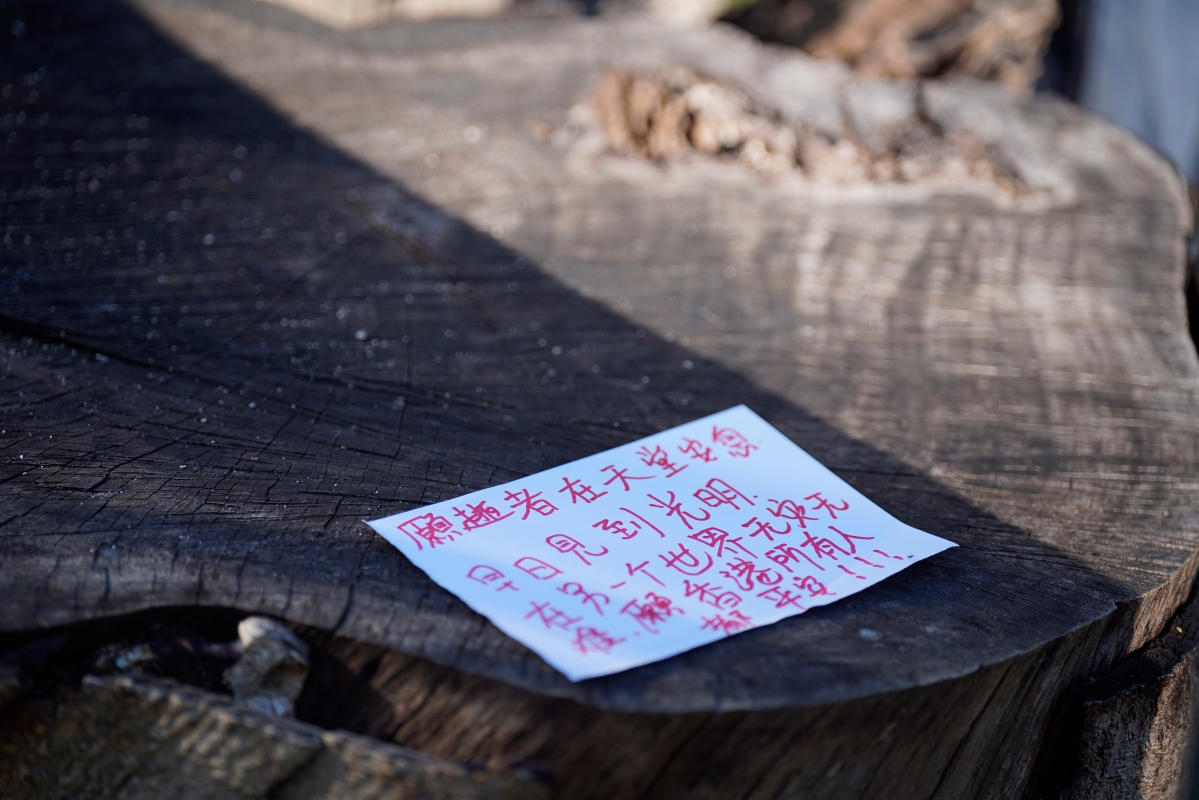 愿逝者在天堂安息.
早日见到光明.
在另一个世界无灾无
难.愿香港所有人
都平安!!!